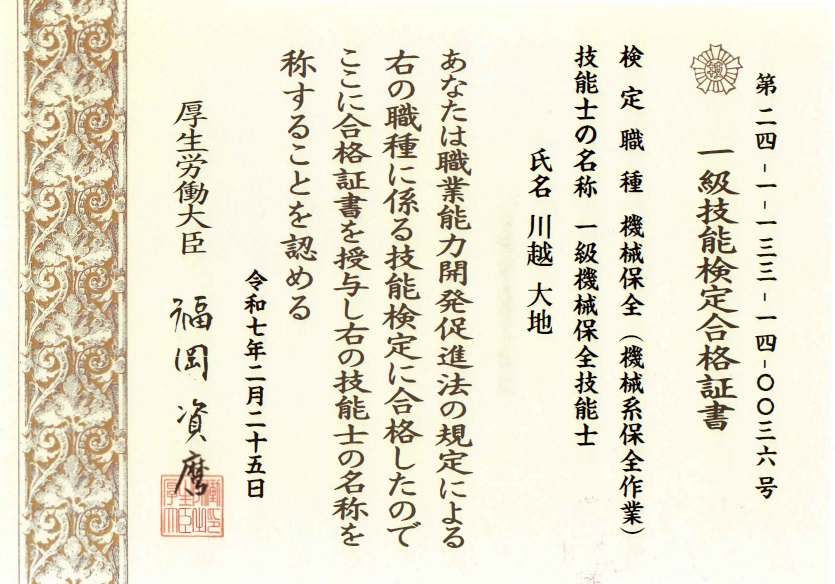 第二四-一-一三三-一四-〇〇三六号
一級技能検定合格証書
検定職種 機械保全(機械系保全作業)
技能士の名称 一級機械保全技能士
氏名 川越 大地
あなたは職業能力開発促進法の規定による
右の職種に係る技能検定に合格したので
ここに合格証書を授与し右の技能士の名称を
称することを認める
令和七年二月二十五日
厚生労働大臣 福岡 資麿